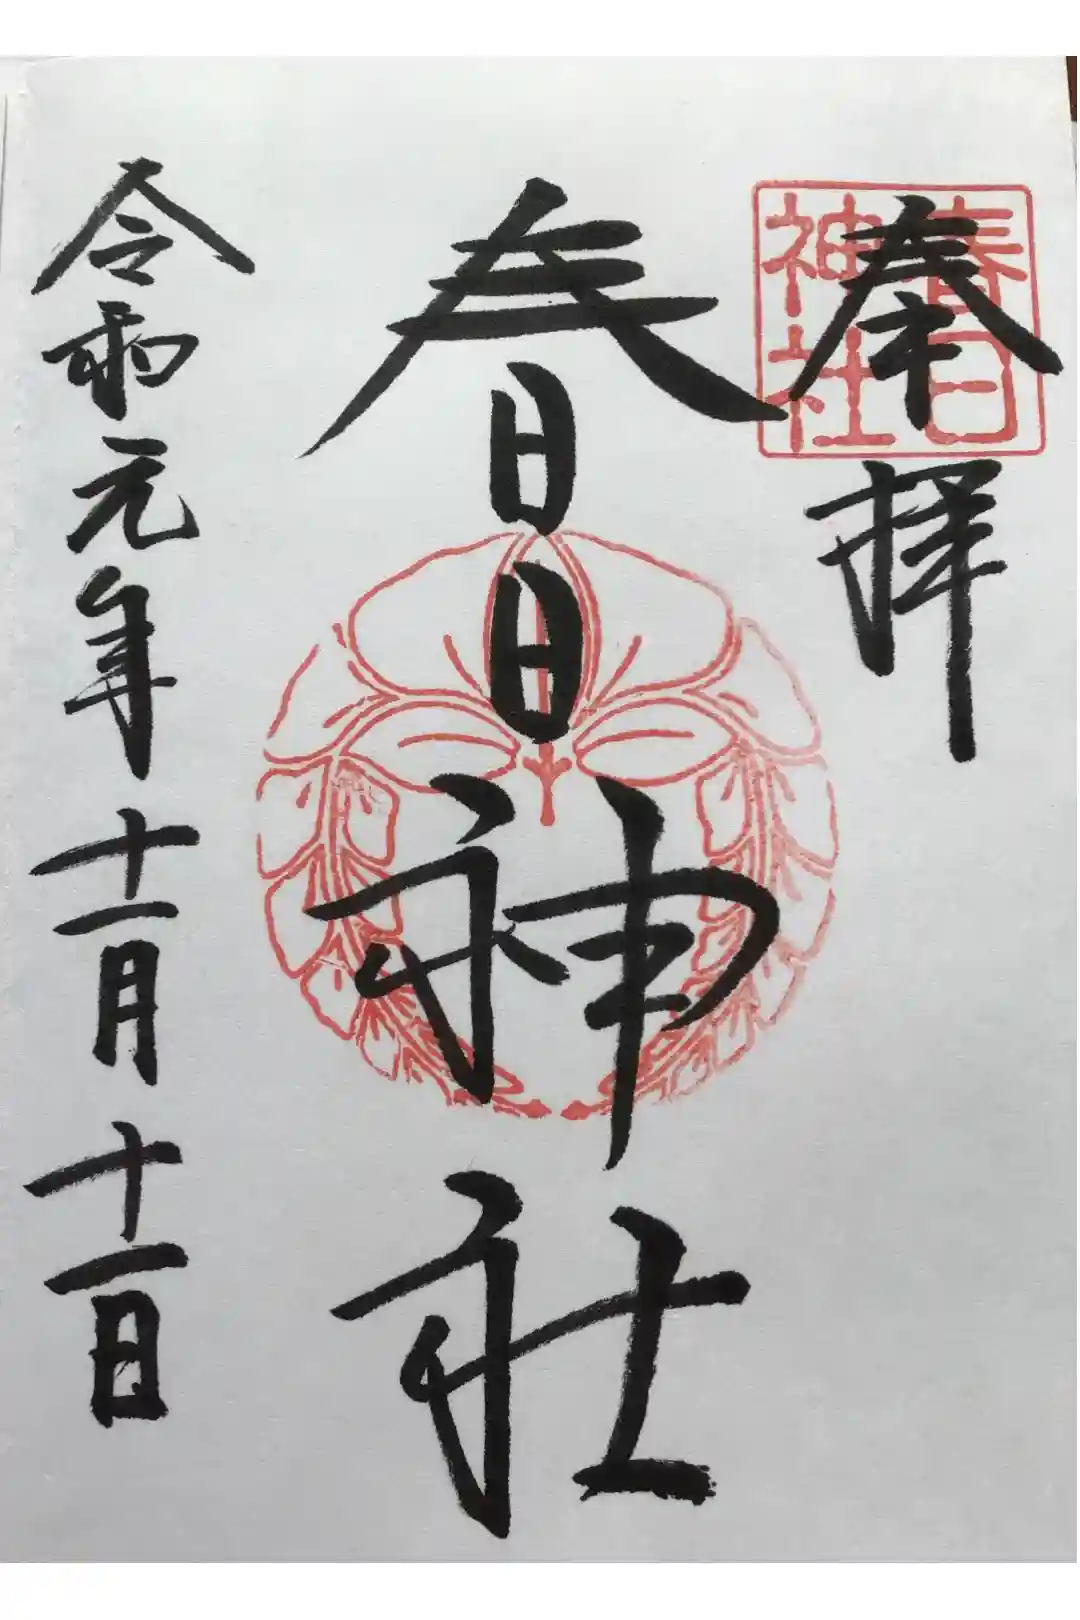 奉拝
春日神社
春日神社
令和元年十一月十一日